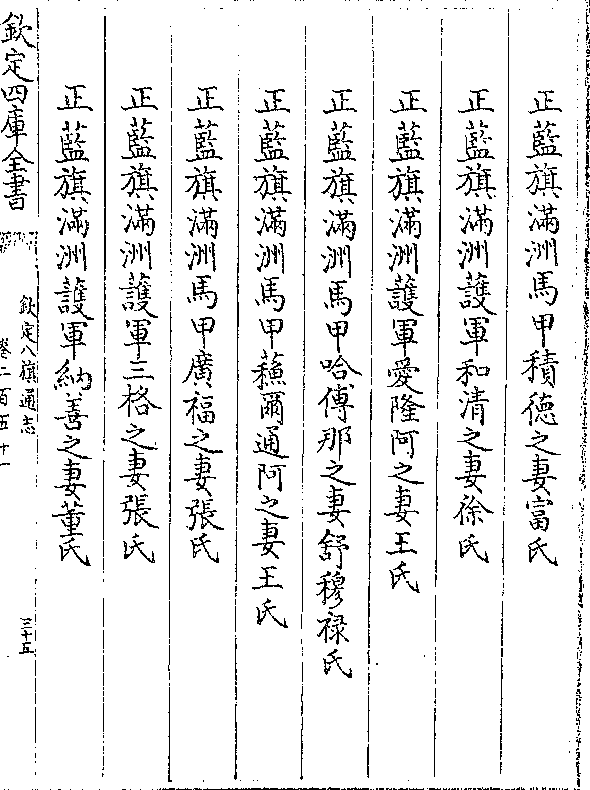 正藍旗滿洲馬甲積德之妻富氏
正藍旗滿洲護軍和清之妻徐氏
正藍旗滿洲護軍愛隆阿之妻王氏
正藍旗滿洲馬甲哈傅那之妻舒穆祿氏
正藍旗滿洲馬甲蘓爾通阿之妻王氏
正藍旗滿洲馬甲廣福之妻張氏
正藍旗滿洲護軍三格之妻張氏
正藍旗滿洲護軍納善之妻董氏
欽定八旗通志
三十五
欽定四庫全書
卷二百五十一